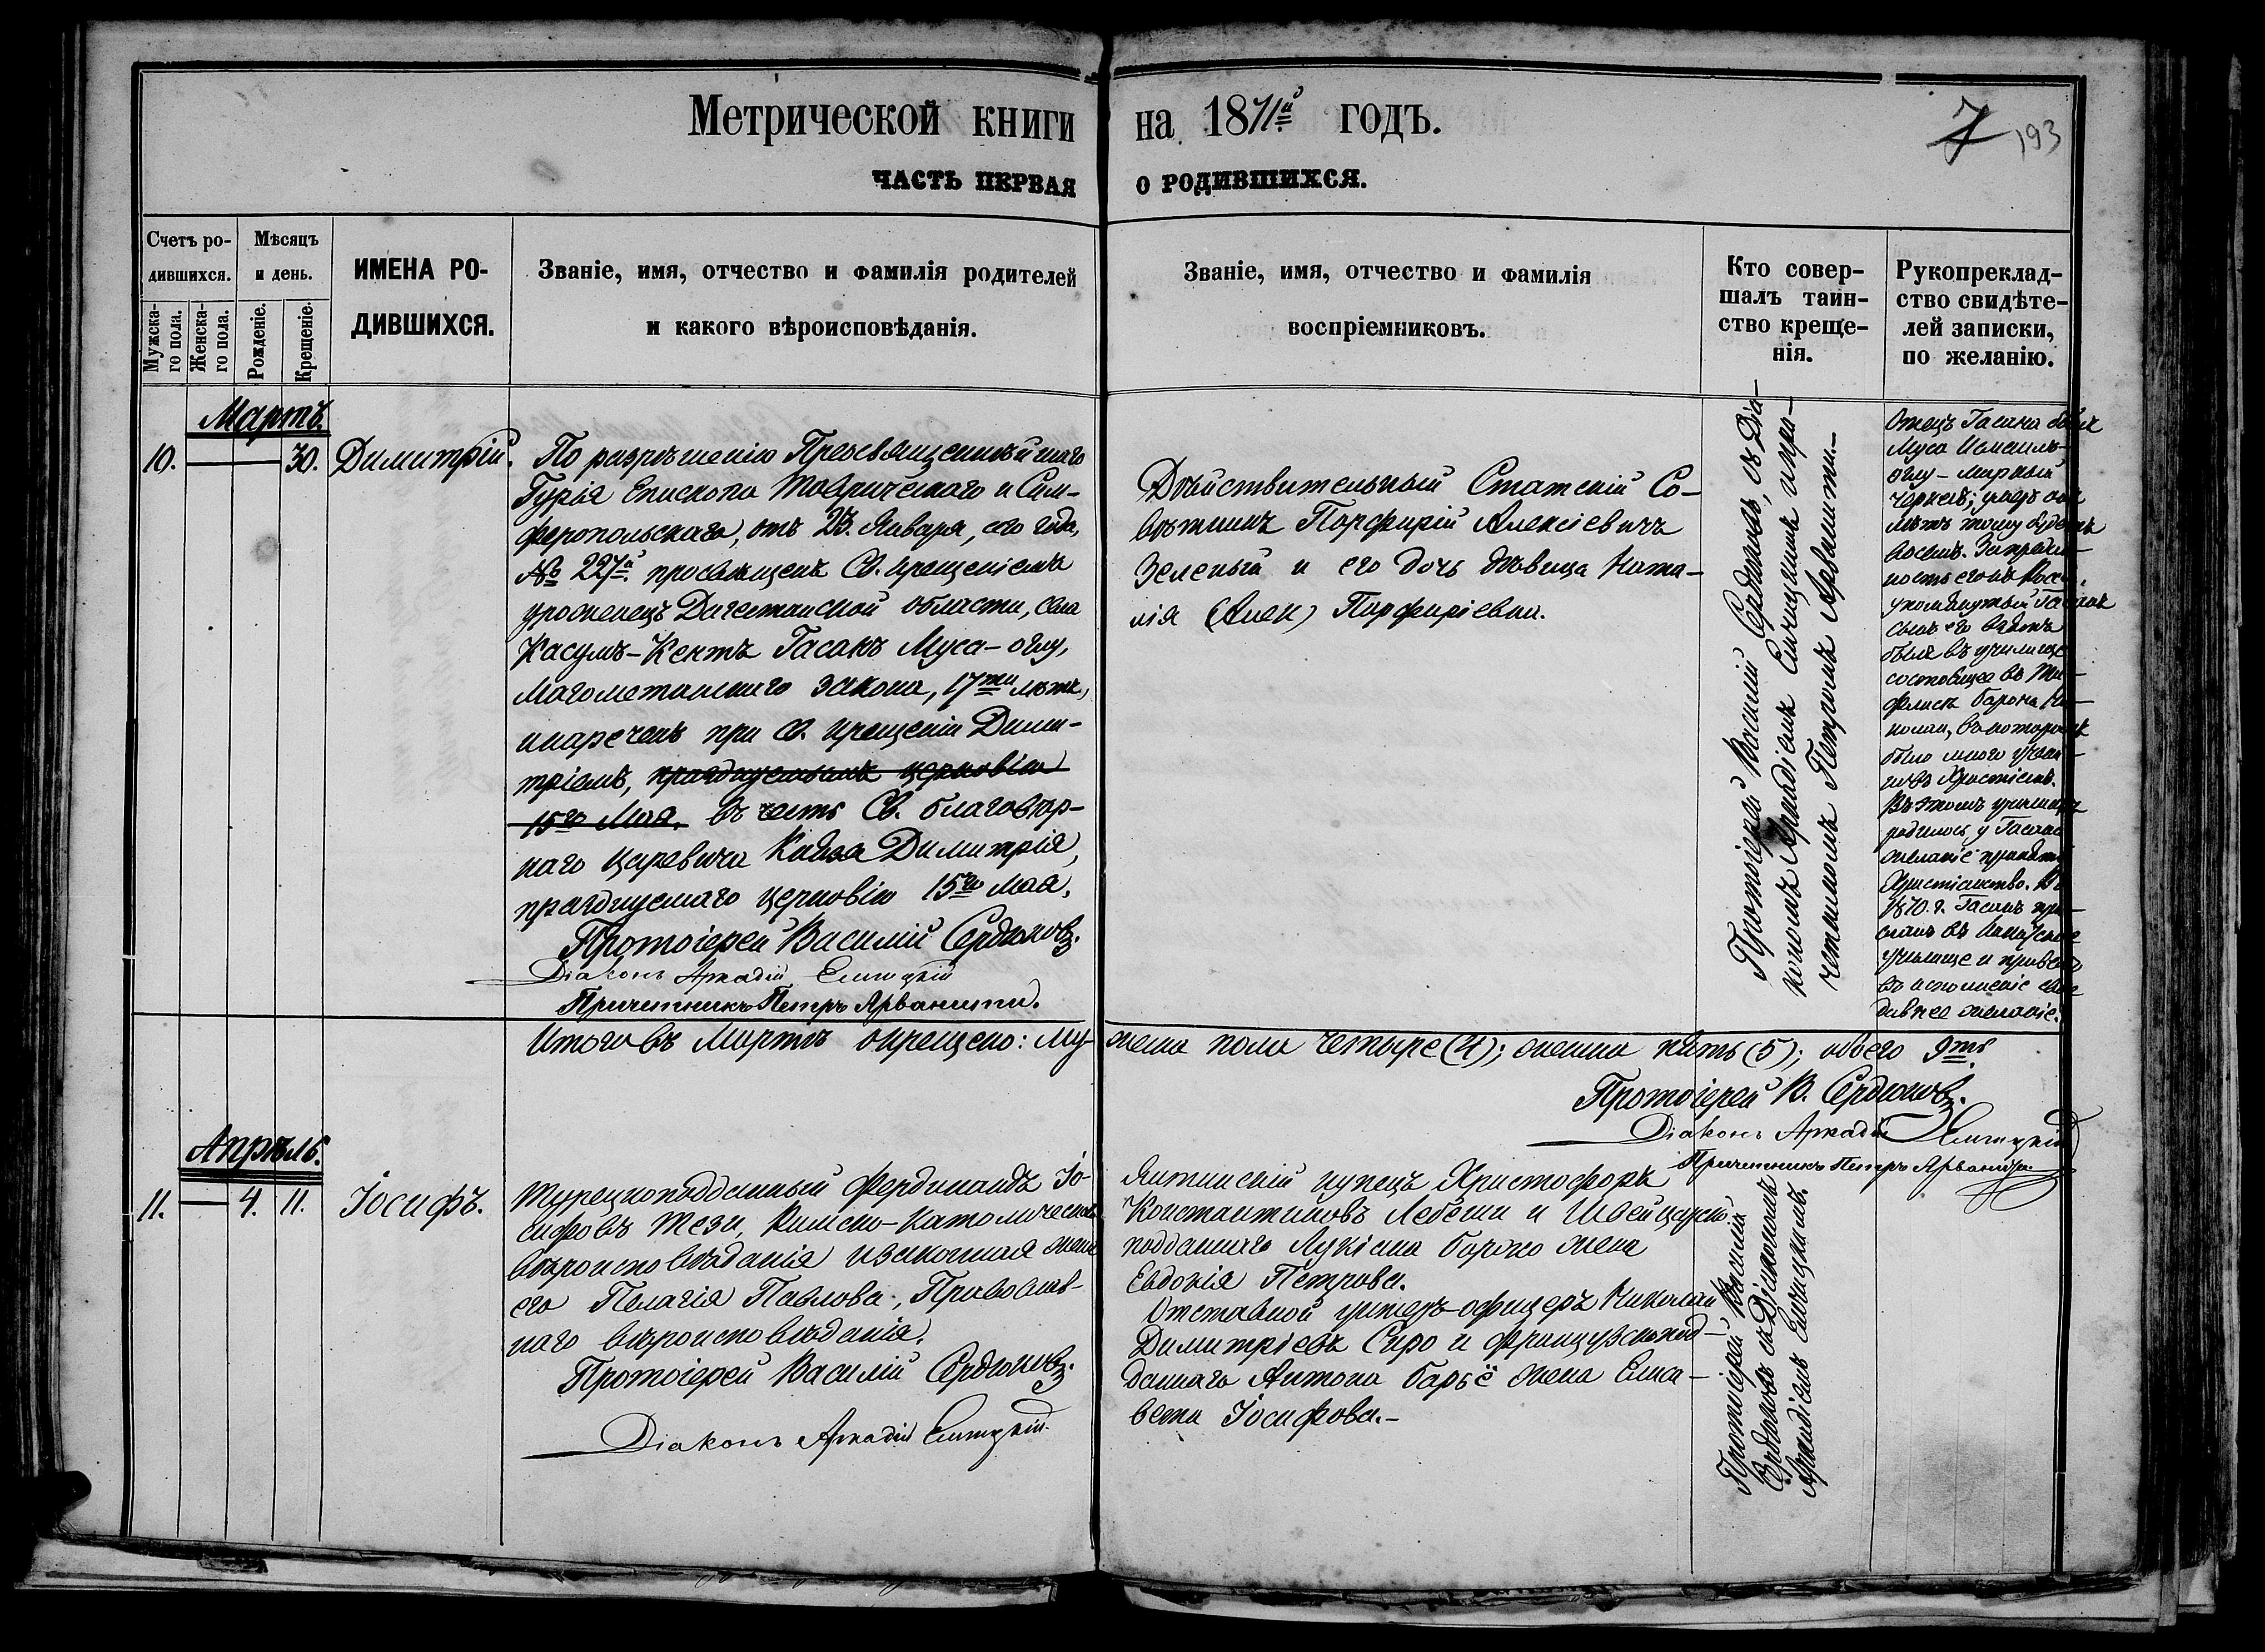 Метрической книги на 1871й годъ.
7 193
ЧАСТЬ ПЕРВАЯ О РОДИВШИХСЯ.
Счетъ ро-
дившихся.
Мужска-
го пола.
Женска-
го пола.
Мѣсяцъ
и день.
Рожденіе.
Крещеніе.
ИМЕНА РО-
ДИВШИХСЯ.
Званіе, имя, отчество и фамилія родителей
и какого вѣроисповѣданія.
Званіе, имя, отчество и фамилія
воспріемниковъ.
Кто совер-
шалъ таин-
ство креще-
нія.
Рукопреклад-
ство свидѣте-
лей записки,
по желанію.
Мартъ.
10. — 30. Димитрій.
По разрѣшенію Преосвященнѣйшаго
Гурія Епископа Таврическаго и Сим-
феропольскаго, отъ 23. Января, сего года,
№ 227й. просвященъ Св. крещеніемъ
уроженецъ Дагестанской области, села
Касумъ-Кентъ Гасанъ Муса-оглу,
Магометанскаго закона, 17ти лѣтъ,
и нареченъ при св. крещеніи Дими-
тріемъ, празднуемымъ церковію
15го Мая. въ честь Св. благовѣр-
наго царевича Князя Димитрія,
празднуемаго церковію 15го Мая.
Протоіерей Василій Сердюковъ.
Діаконъ Аркадій Синицкій
Причетникъ Петръ Арванити.
Дѣйствительный Статскій Со-
вѣтникъ Порфирій Алексіевичъ
Зеленый и его дочь дѣвица Ната-
лія (Алек) Порфиріевна.
Протоіерей Василій Сердюковъ, съ Діа-
кономъ Аркадіемъ Синицкимъ и при-
четникомъ Петромъ Арванити.-
Отецъ Гасана былъ
Муса Исмаилъ-
оглу - мирный
Черкесъ; умеръ
лѣтъ тому будетъ
восемь. За предан-
ность его къ
упомянутый Гасанъ
сынъ его взятъ
былъ въ училище
состоящее въ Ти-
флисѣ барона Ни-
колаи, въ которомъ
было много учени-
ковъ Христіанъ.
Въ этомъ училищѣ
родилось у Гасана
желаніе принять
Христіанство. Въ
1870. г. Гасанъ при-
сланъ въ
училище и привелъ
въ исполненіе свое
давнее желаніе.
Итого въ Мартѣ окрещено: му- жеска пола четыре (4); женска пять (5); обоего 9ть.
Протоіерей В. Сердюковъ.
Діаконъ Аркадій Синицкій
Причетникъ Петръ Арванити.
Апрѣль.
11. — 4. 11. Іосифъ.
Турецкоподданный Фердинандъ Іо-
сифовъ Тези, Римско-Католическаго
вѣроисповѣданія и законная жена
его Пелагія Павлова, Православ-
наго вѣроисповѣданія.
Протоіерей Василій Сердюковъ.
Діаконъ Аркадій Синицкій.
Ялтинскій купецъ Христофоръ
Константиновъ Лебеши и Швейцарско-
подданнаго Лукіана жена
Евдокія Петрова.
Отставной унтеръ-офицеръ Николай
Димитріевъ Сиро и французскопод-
даннаго Антона Барьё жена Елиса-
вета Іосифова.-
Протоіерей Василій
Сердюковъ съ Діакономъ
Аркадіемъ Синицкимъ.